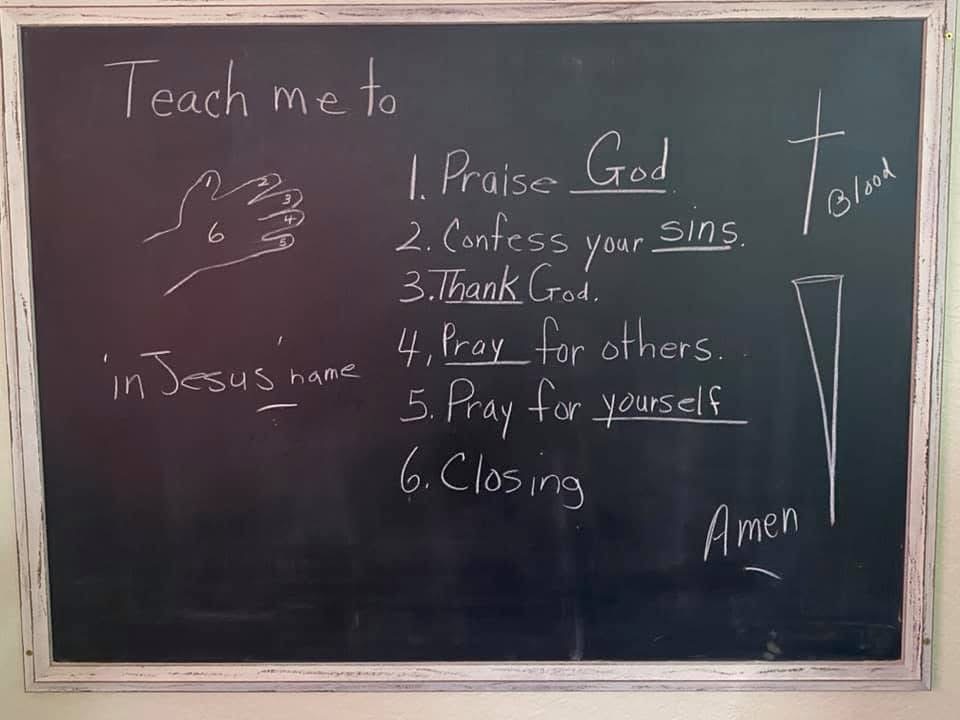 Teach me to
1 2 3 4 5 6
1. Praise God
2. Confess your sins.
3. Thank God.
4, Pray for others.
5. Pray for yourself
6. Closing
in Jesus' name
Blood
Amen